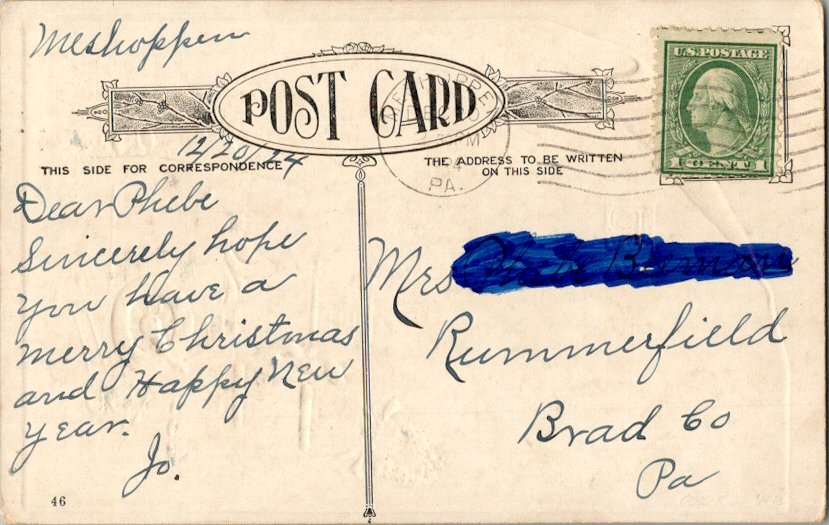 Meshoppen
POST CARD
12/20/24
THIS SIDE FOR CORRESPONDENCE
THE ADDRESS TO BE WRITTEN
ON THIS SIDE
U.S. POSTAGE
1 CENT 1
PA.
Dear Phebe
Sincerely hope
you have a
Merry Christmas
and Happy New
Year.
Jo.
Mrs
Rummerfield
Brad Co
Pa
46